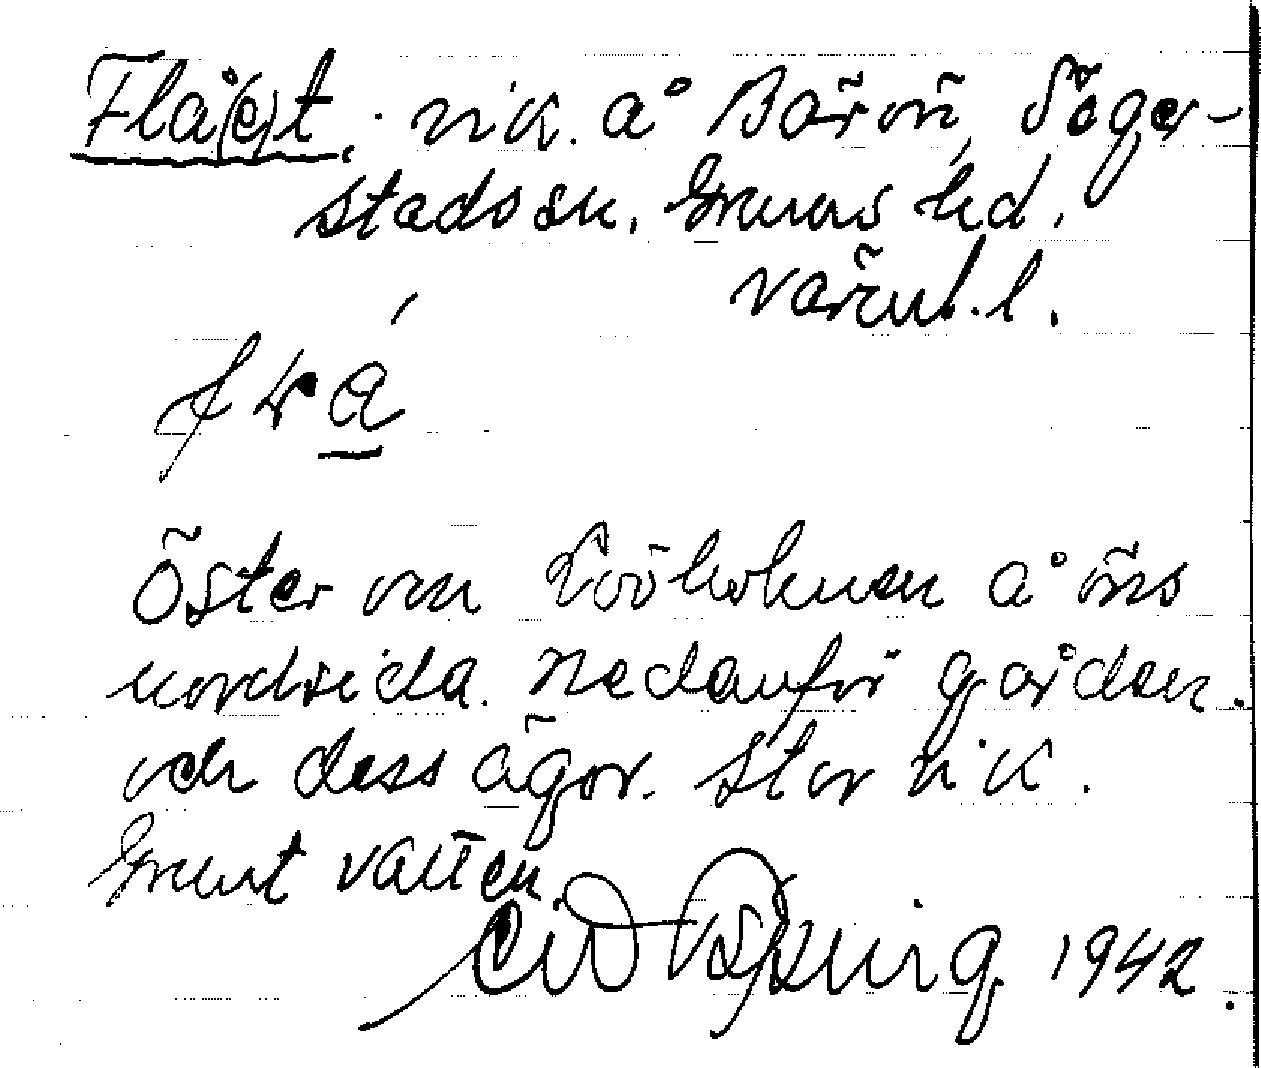 Flå(e)t, vik. å Bärön, Säger-
stads sn. Grums hd.
Värml. l.
f l e a
Öster om Lövholmen å öns
nordsida. Nedanför gården
och dess ägor. Stor vik.
Grunt vatten.
1942.